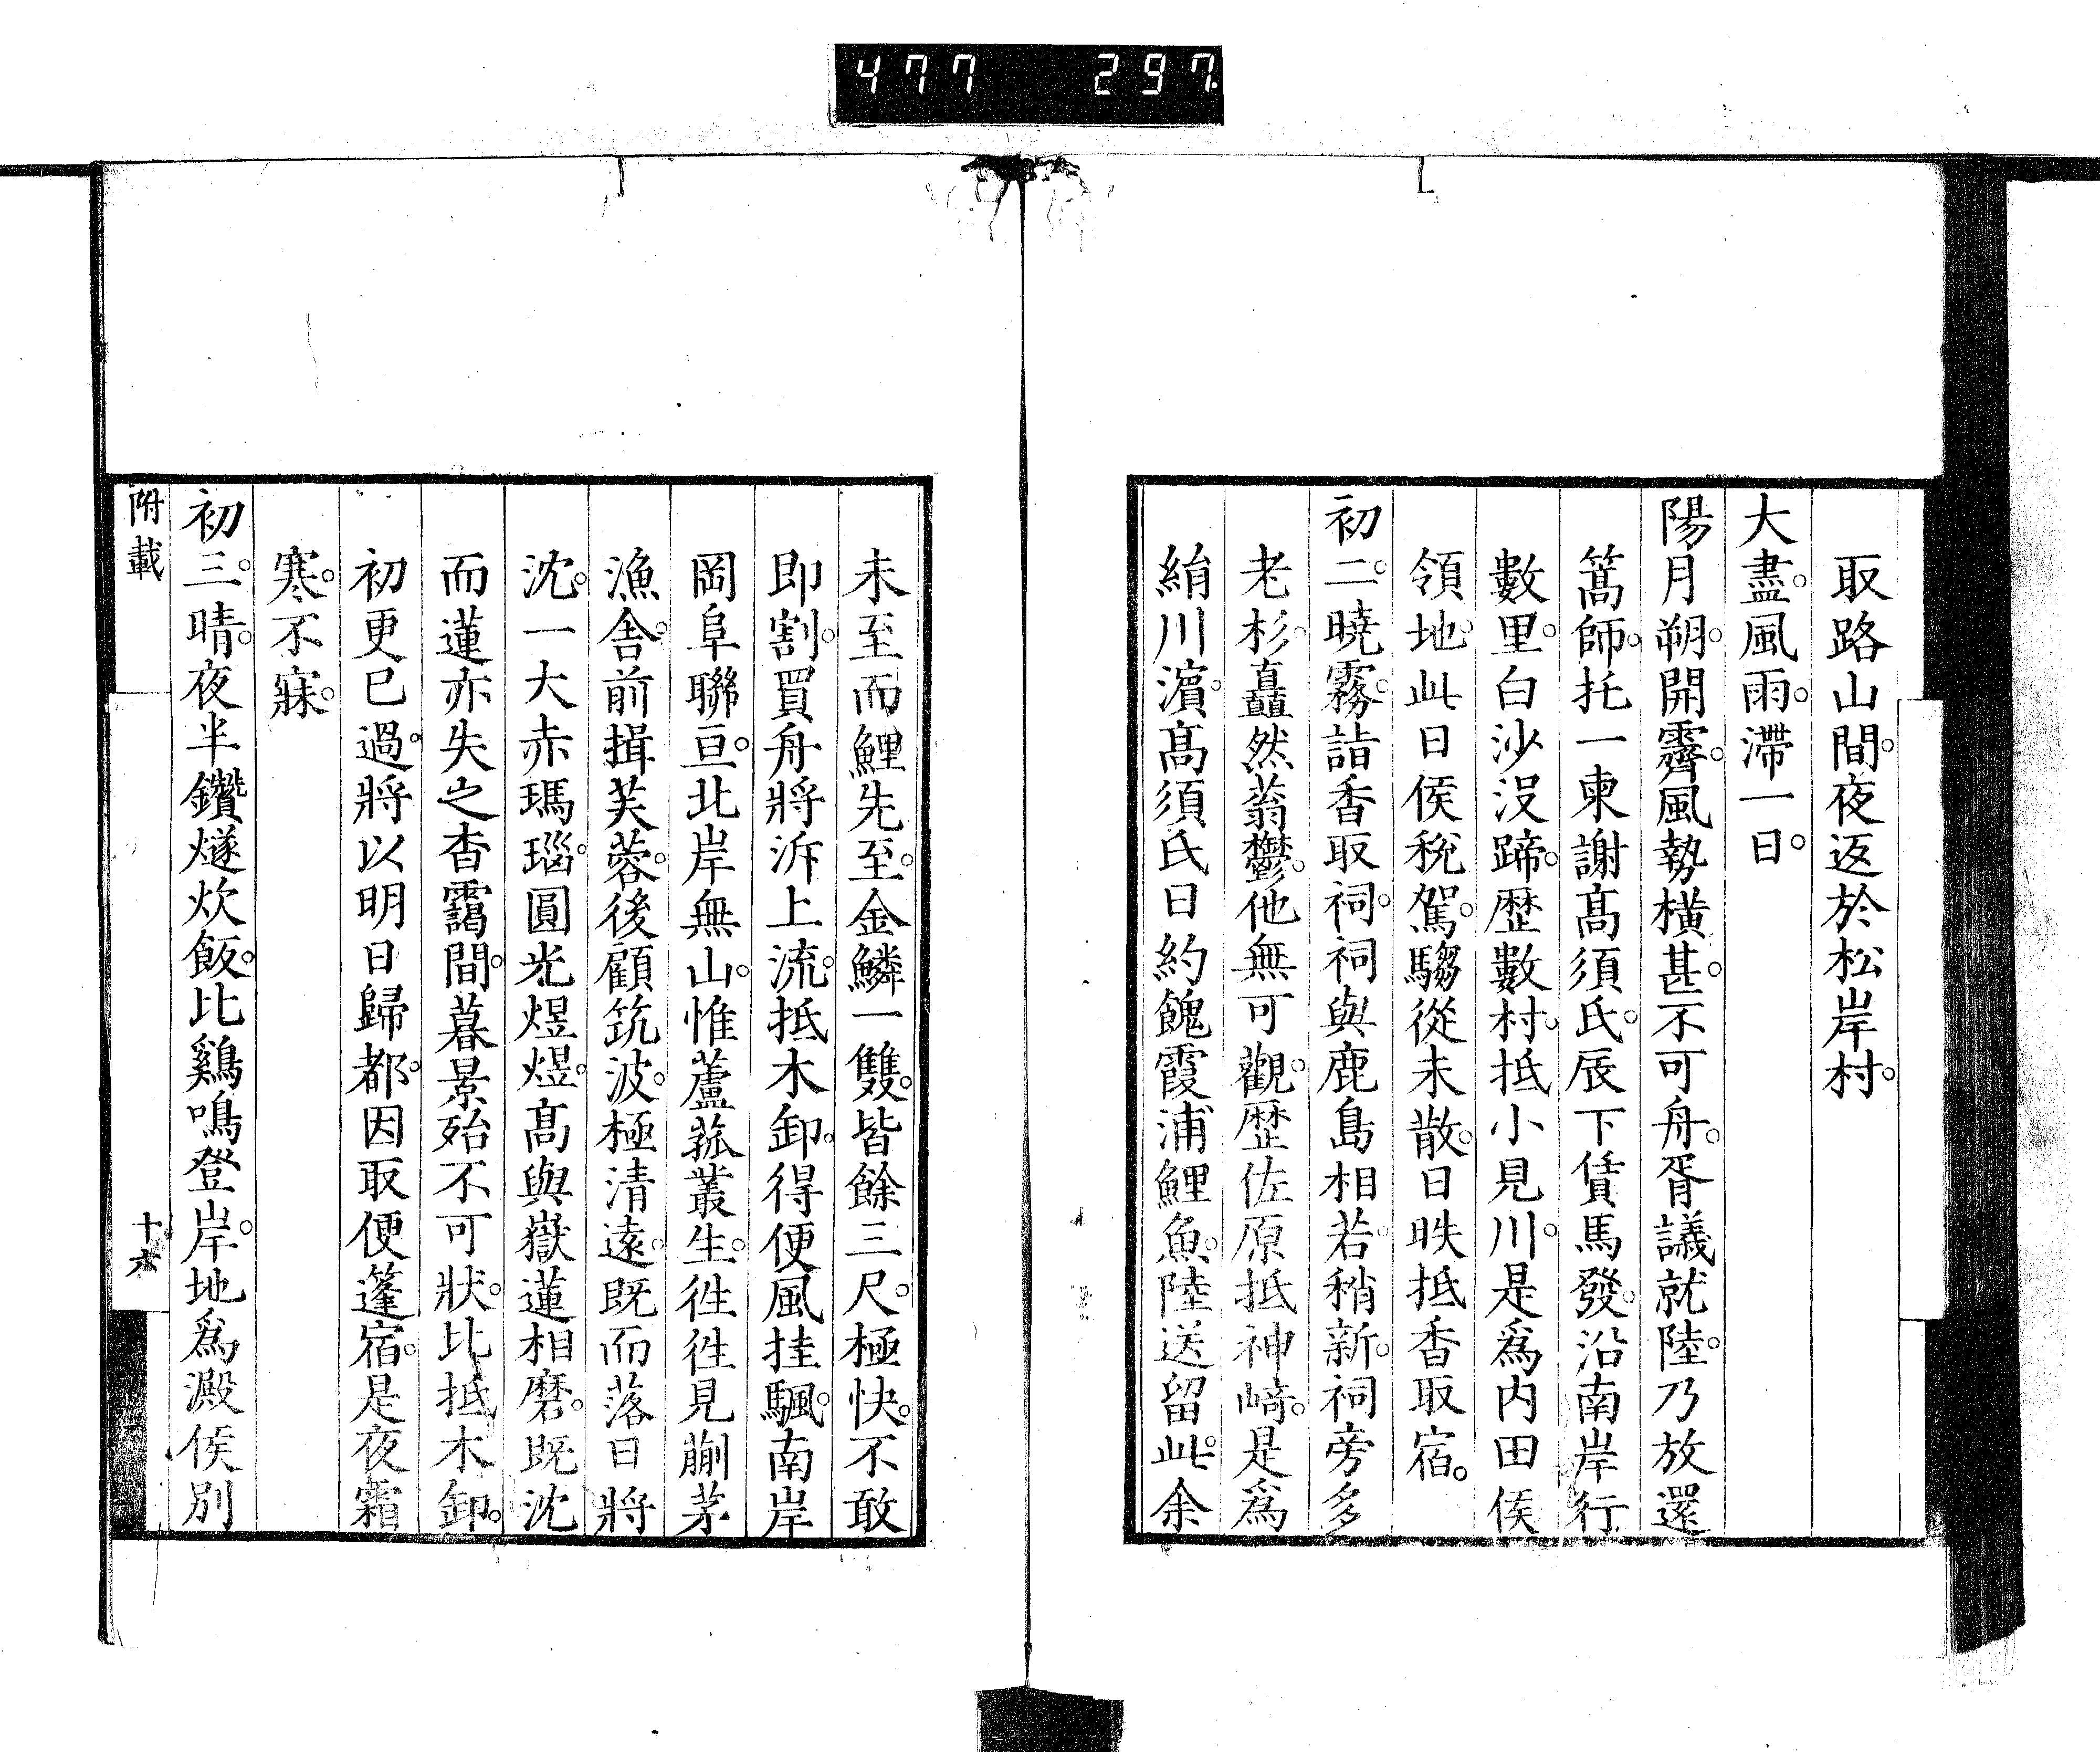 477 297
取路山間。夜返於松岸村。
大盡。風雨。滯一日。
陽月朔。開霽。風勢橫甚。不可舟。胥議就陸。乃放還
篙師。托一柬謝髙須氏。辰下賃馬發。沿南岸行
數里。白沙没蹄。歴數村。抵小見川。是爲内田侯
領地。此日侯稅駕。騶從未散。日昳抵香取宿。
初二。曉霧。詣香取祠。祠與鹿島相若。稍新。祠旁多
老杉。矗然蓊鬱。他無可觀。歴佐原抵神﨑。是爲
絹川濵。髙須氏日約餽霞浦鯉魚。陸送留此。余
未至而鯉先至。金鱗一雙。皆餘三尺。極快。不敢
即割。買舟將泝上流。抵木卸。得便風挂颿。南岸
岡阜聯亘。北岸無山。惟蘆菰叢生。徃徃見蒯茅
漁舎。前揖芙蓉。後顧筑波。極清遠。既而落日將
沈。一大赤瑪瑙。圓光煜煜。髙與嶽蓮相磨。既沈
而蓮亦失之杳靄間。暮景殆不可狀。比抵木卸。
初更已過。將以明日歸都。因取便篷宿。是夜霜
寒。不寐。
初三。晴。夜半鑽燧炊飯。比鷄鳴登岸。地爲澱侯別
附載
十六